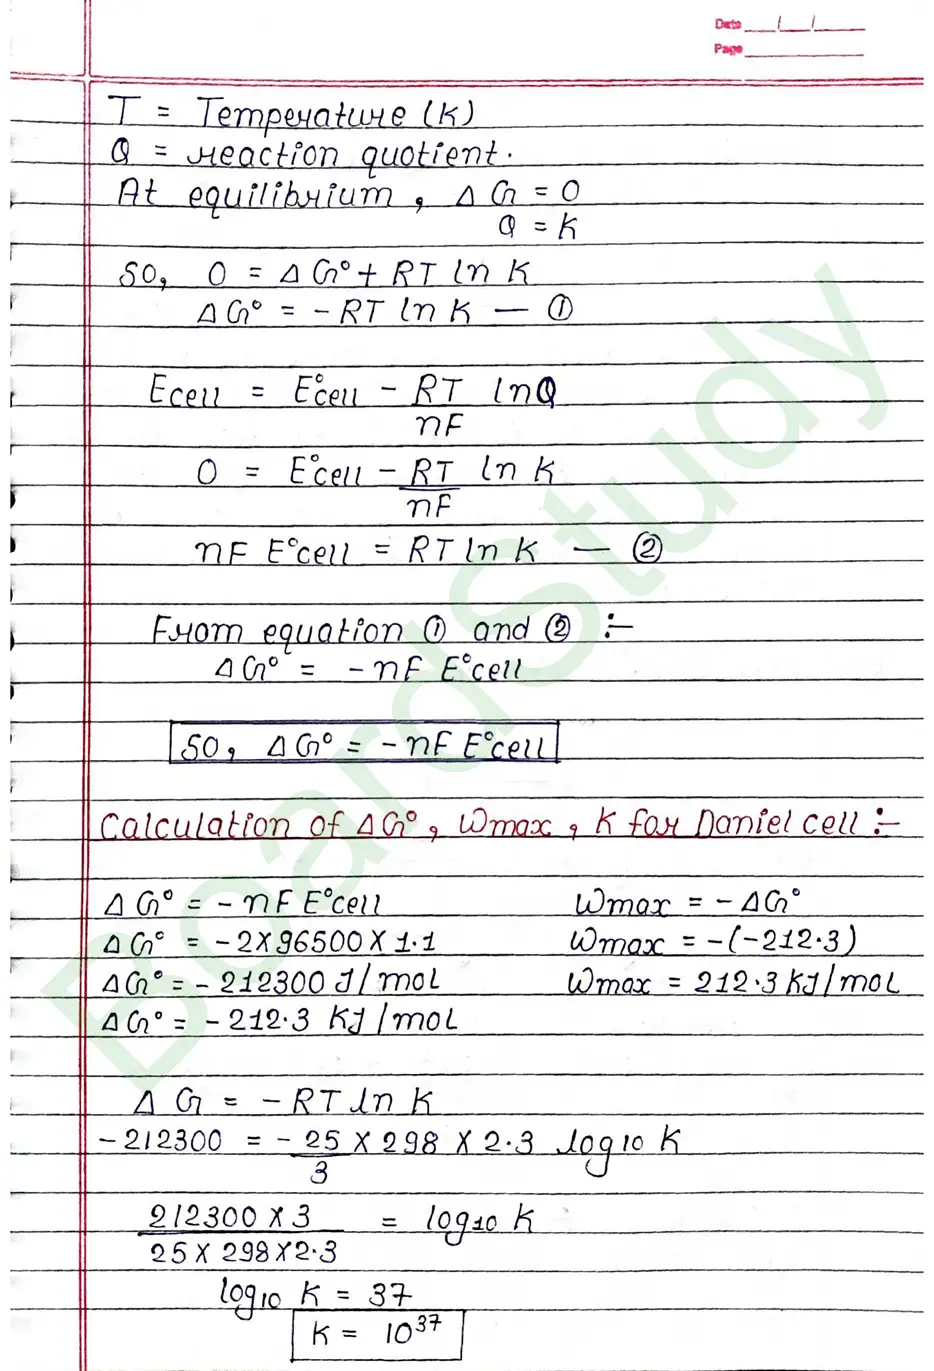 Date __/__/__
Page
T = Temperature (K)
Q = reaction quotient.
At equilibrium, ΔG = 0
Q = K
So, 0 = ΔG° + RT ln K
ΔG° = -RT ln K — ①
Ecell = E°cell - RT/nF lnQ
0 = E°cell - RT/nF ln K
nF E°cell = RT ln K — ②
From equation ① and ② :-
ΔG° = - nF E°cell
So, ΔG° = - nF E°cell
Calculation of ΔG°, Wmax, K for Daniel cell :-
ΔG° = - nF E°cell Wmax = - ΔG°
ΔG° = -2×96500×1.1 Wmax = -(-212.3)
ΔG° = - 212300 J/mol Wmax = 212.3 KJ/mol
ΔG° = - 212.3 KJ/mol
ΔG = -RT ln K
-212300 = - 25/3 × 298 × 2.3 log10 K
212300 × 3 / 25 × 298 × 2.3 = log10 K
log10 K = 37
K = 10^37
BoardStudy